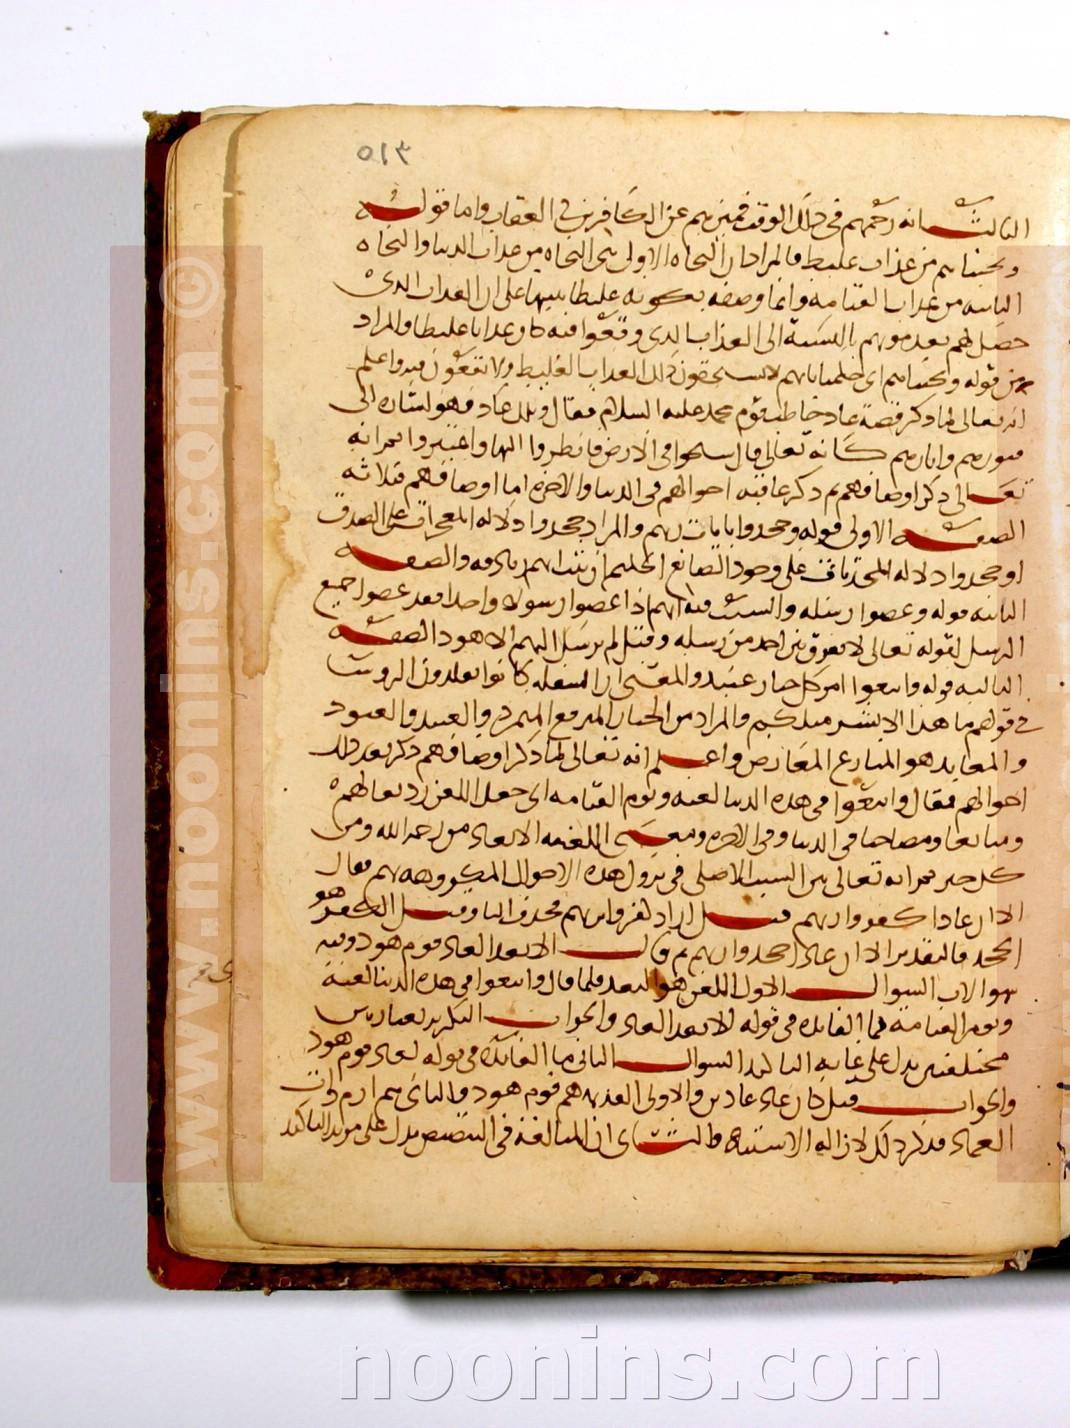 ٥١٣
الثالث انه رحمهم فى ذلك الوقت فميزهم عن الكافرين فى العقاب واما قوله
ونجيناهم من عذاب غليظ فالمراد ان النجاه الاولى هى النجاه من عذاب الدنيا والنجاه
الثانيه من عذاب القيامه وانما وصفه بكونه غليظا تنبيها على ان العذاب الذى
حصل لهم بعد موتهم بالنسبة الى العذاب الذى وقعوا فيه كان عذابا غليظا والمراد
من قوله ونجيناهم اى حكمنا بانهم لا يستحقون ذلك العذاب الغليظ ولا يقعون فيه واعلم
انه تعالى لما ذكر قصة عاد خاطب قوم محمد عليه السلام فقال وتلك عاد فهو اشاره الى
قبورهم واثارهم كانه تعالى قال سيحوا فى الارض فانظروا اليها واعتبروا ثم انه
تعالى ذكر اوصافهم ثم ذكر عاقبه احوالهم فى الدنيا والاخره اما اوصافهم فثلاثه
الصفه الاولى قوله وجحدوا بايات ربهم والمراد جحدوا دلاله المعجزات على الصدق
او جحدوا دلاله المحدثات على وجود الصانع الحكيم ان ثبت انهم زنادقه والصفه
الثانيه قوله وعصوا رسله والسبب فيه انهم اذا عصوا رسولا واحدا فقد عصوا جميع
الرسل لقوله تعالى لا نفرق بين احد من رسله وقيل لم يرسل اليهم الا هود الصفه
الثالثه قوله واتبعوا امر كل جبار عنيد والمعنى ان السفله كانوا يقلدون الروسا
فى قولهم ما هذا الا بشر مثلكم والمراد من الجبار المرتفع المتمرد والعنيد والعنود
والمعاند هو المنازع المعارض واعلم انه تعالى لما ذكر اوصافهم ذكر بعد ذلك
احوالهم فقال واتبعوا فى هذه الدنيا لعنه ويوم القيامه اى جعل اللعن رديفا لهم
ومتابعا ومصاحبا فى الدنيا وفى الاخره ومعنى اللعنه الابعاد من رحمه الله ومن
كل خير ثم انه تعالى بين السبب الاصلى فى نزول هذه الاحوال المكروهه بهم فقال
الا ان عادا كفروا ربهم قيل اراد كفروا بربهم فحذف الباء وقيل الكفر هو
الجحد فالتقدير الا ان عاد جحدوا ربهم ثم قال الا بعدا لعاد قوم هود وفيه
سوالان السوال الاول اللعن هو البعد فلما قال واتبعوا فى هذه الدنيا لعنة
ويوم القيامة فما الفائده فى قوله الا بعدا لعاد والجواب التكرير بعبارتين
مختلفتين يدل على غاية التاكيد السوال الثانى ما الفائدة فى قوله لعاد قوم هود
والجواب قيل كان عاد عادين والاولى القديمه هم قوم هود والثانى هم ارم ذات
العماد فذكر ذلك لازاله الاشتباه والثانى ان المبالغة فى التنصيص يدل على مزيد التاكيد
www.noonins.com ©
noonins.com